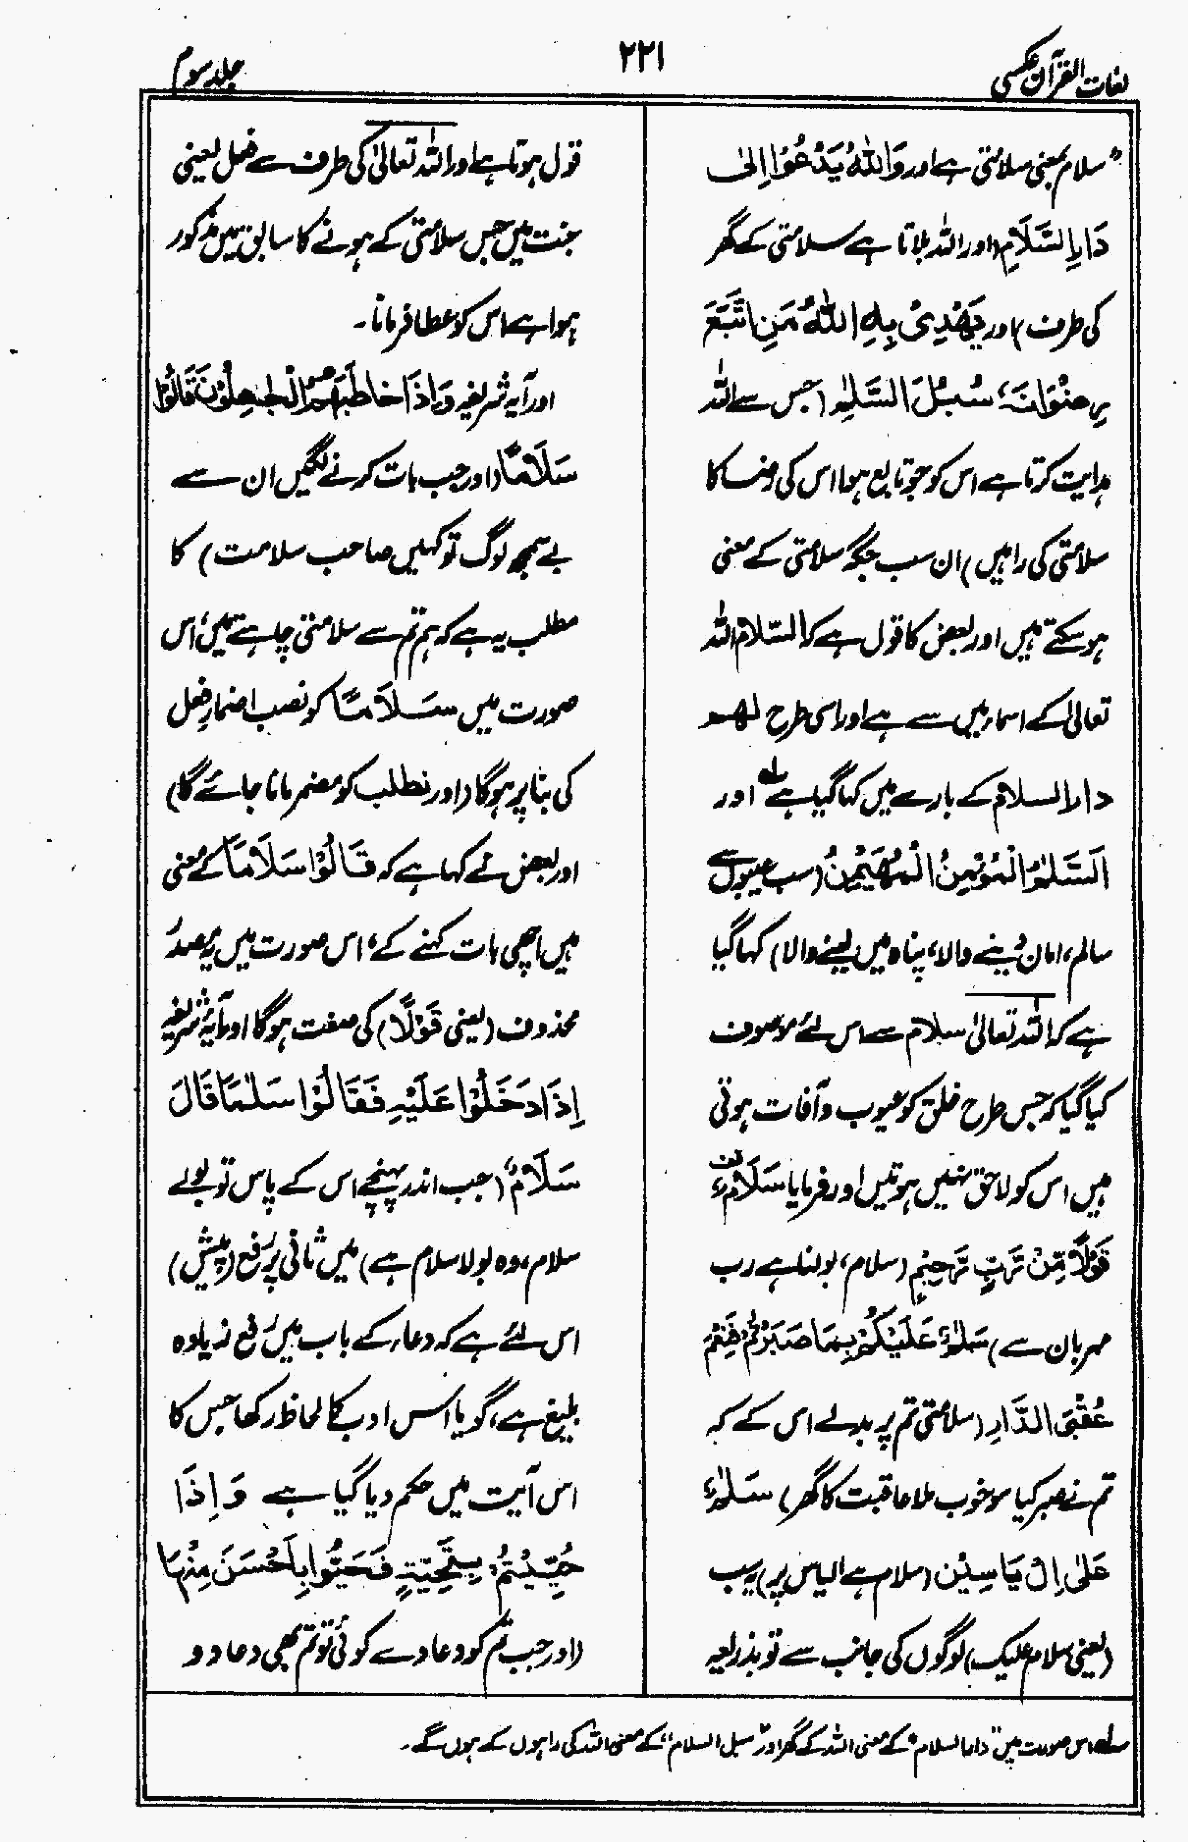 لغات القرآن عکسی
۲۲۱
جلد سوم
سلام بمعنی سلامتی ہے اور وَاللّٰهُ یَدْعُوْا اِلیٰ
دَارِ السَّلَامِ (اور اللہ بلاتا ہے سلامتی کے گھر
کی طرف) اور یَهْدِیْ بِهِ اللّٰهُ مَنِ اتَّبَعَ
رِضْوَانَهٗ سُبُلَ السَّلٰمِ (جس سے اللہ
ہدایت کرتا ہے اس کو جو تابع ہوا اس کی رضا کا
سلامتی کی راہیں) ان سب جگہ سلامتی کے معنی
ہوسکتے ہیں اور بعض کا قول ہے کہ السّلام اللہ
تعالیٰ کے اسماء میں سے ہے اور اسی طرح لهم
دار السلام کے بارے میں کہا گیا ہے لہ اور
اَلسَّلٰمُ الْمُؤْمِنُ الْمُهَیْمِنُ (سب عیبوں سے
سالم، امان دینے والا، پناہ میں لینے والا) کہا گیا
ہے کہ اللہ تعالیٰ سلام سے اس لئے موصوف
کیا گیا کہ جس طرح خلق کو عیوب و آفات ہوتی
ہیں اس کو لاحق نہیں ہوتیں اور فرمایا سَلَامٌ
قَوْلًا مِّنْ رَّبٍّ رَّحِیْمٍ (سلام، بولنا ہے رب
مہربان سے) سَلٰمٌ عَلَیْكُمْ بِمَا صَبَرْتُمْ فَنِعْمَ
عُقْبَی الدَّارِ (سلامتی تم پر بدلے اس کے کہ
تم نے صبر کیا سو خوب ملا عاقبت کا گھر) سَلٰمٌ
عَلٰی اِلْ یَاسِیْن (سلام ہے الیاس پر) یہ سب
(یعنی سلام علیک) لوگوں کی جانب سے تو بذریعہ
قول ہوتا ہے اور اللہ تعالیٰ کی طرف سے فعل یعنی
جنت میں جس سلامتی کے ہونے کا سابق میں مذکور
ہوا ہے اس کو عطا فرمانا۔
اور آیۂ شریفہ وَاِذَا خَاطَبَهُمُ الْجٰهِلُوْنَ قَالُوْا
سَلَامًا (اور جب بات کرنے لگیں ان سے
بے سمجھ لوگ تو کہیں صاحب سلامت) کا
مطلب یہ ہے کہ ہم تم سے سلامتی چاہتے ہیں، اس
صورت میں سَلَامًا کو نصب اضمارِ فعل
کی بنا پر ہوگا (اور نطلب کو مضمر مانا جائے گا)
اور بعض نے کہا ہے کہ قَالُوْا سَلَامًا کے معنی
ہیں اچھی بات کہنے کے، اس صورت میں یہ مصدر
محذوف (یعنی قَوْلًا) کی صفت ہوگا اور آیۂ شریفہ
اِذَا دَخَلُوْا عَلَیْهِ فَقَالُوْا سَلٰمًا قَالَ
سَلَامٌ (جب اندر پہنچے اس کے پاس تو بولے
سلام، وہ بولا سلام ہے) میں ثانی پر رفع (پیش)
اس لئے ہے کہ دعاء کے باب میں رفع زیادہ
بلیغ ہے، گویا اس ادب کا لحاظ رکھا جس کا
اس آیت میں حکم دیا گیا ہے وَاِذَا
حُیِّیْتُمْ بِتَحِیَّةٍ فَحَیُّوْا بِاَحْسَنَ مِنْهَا
(اور جب تم کو دعا دے کوئی تو تم بھی دعا دو
لہ اس صورت میں "دار السلام" کے معنی اللہ کے گھر اور "سبل السلام" کے معنی اللہ کی راہوں کے ہوں گے۔